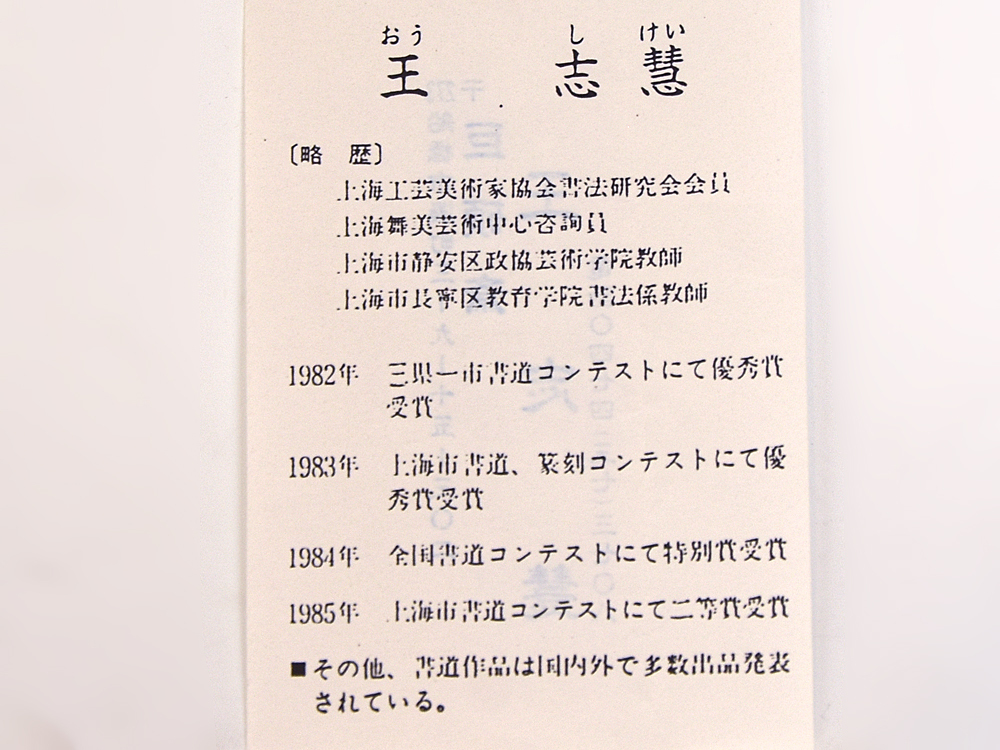 おう し けい
王 志 慧
〔略 歴〕
上海工芸美術家協会書法研究会会員
上海舞美芸術中心咨詢員
上海市静安区政協芸術学院教師
上海市長寧区教育学院書法係教師
1982年 三県一市書道コンテストにて優秀賞
受賞
1983年 上海市書道、篆刻コンテストにて優
秀賞受賞
1984年 全国書道コンテストにて特別賞受賞
1985年 上海市書道コンテストにて二等賞受賞
■その他、書道作品は国内外で多数出品発表
されている。